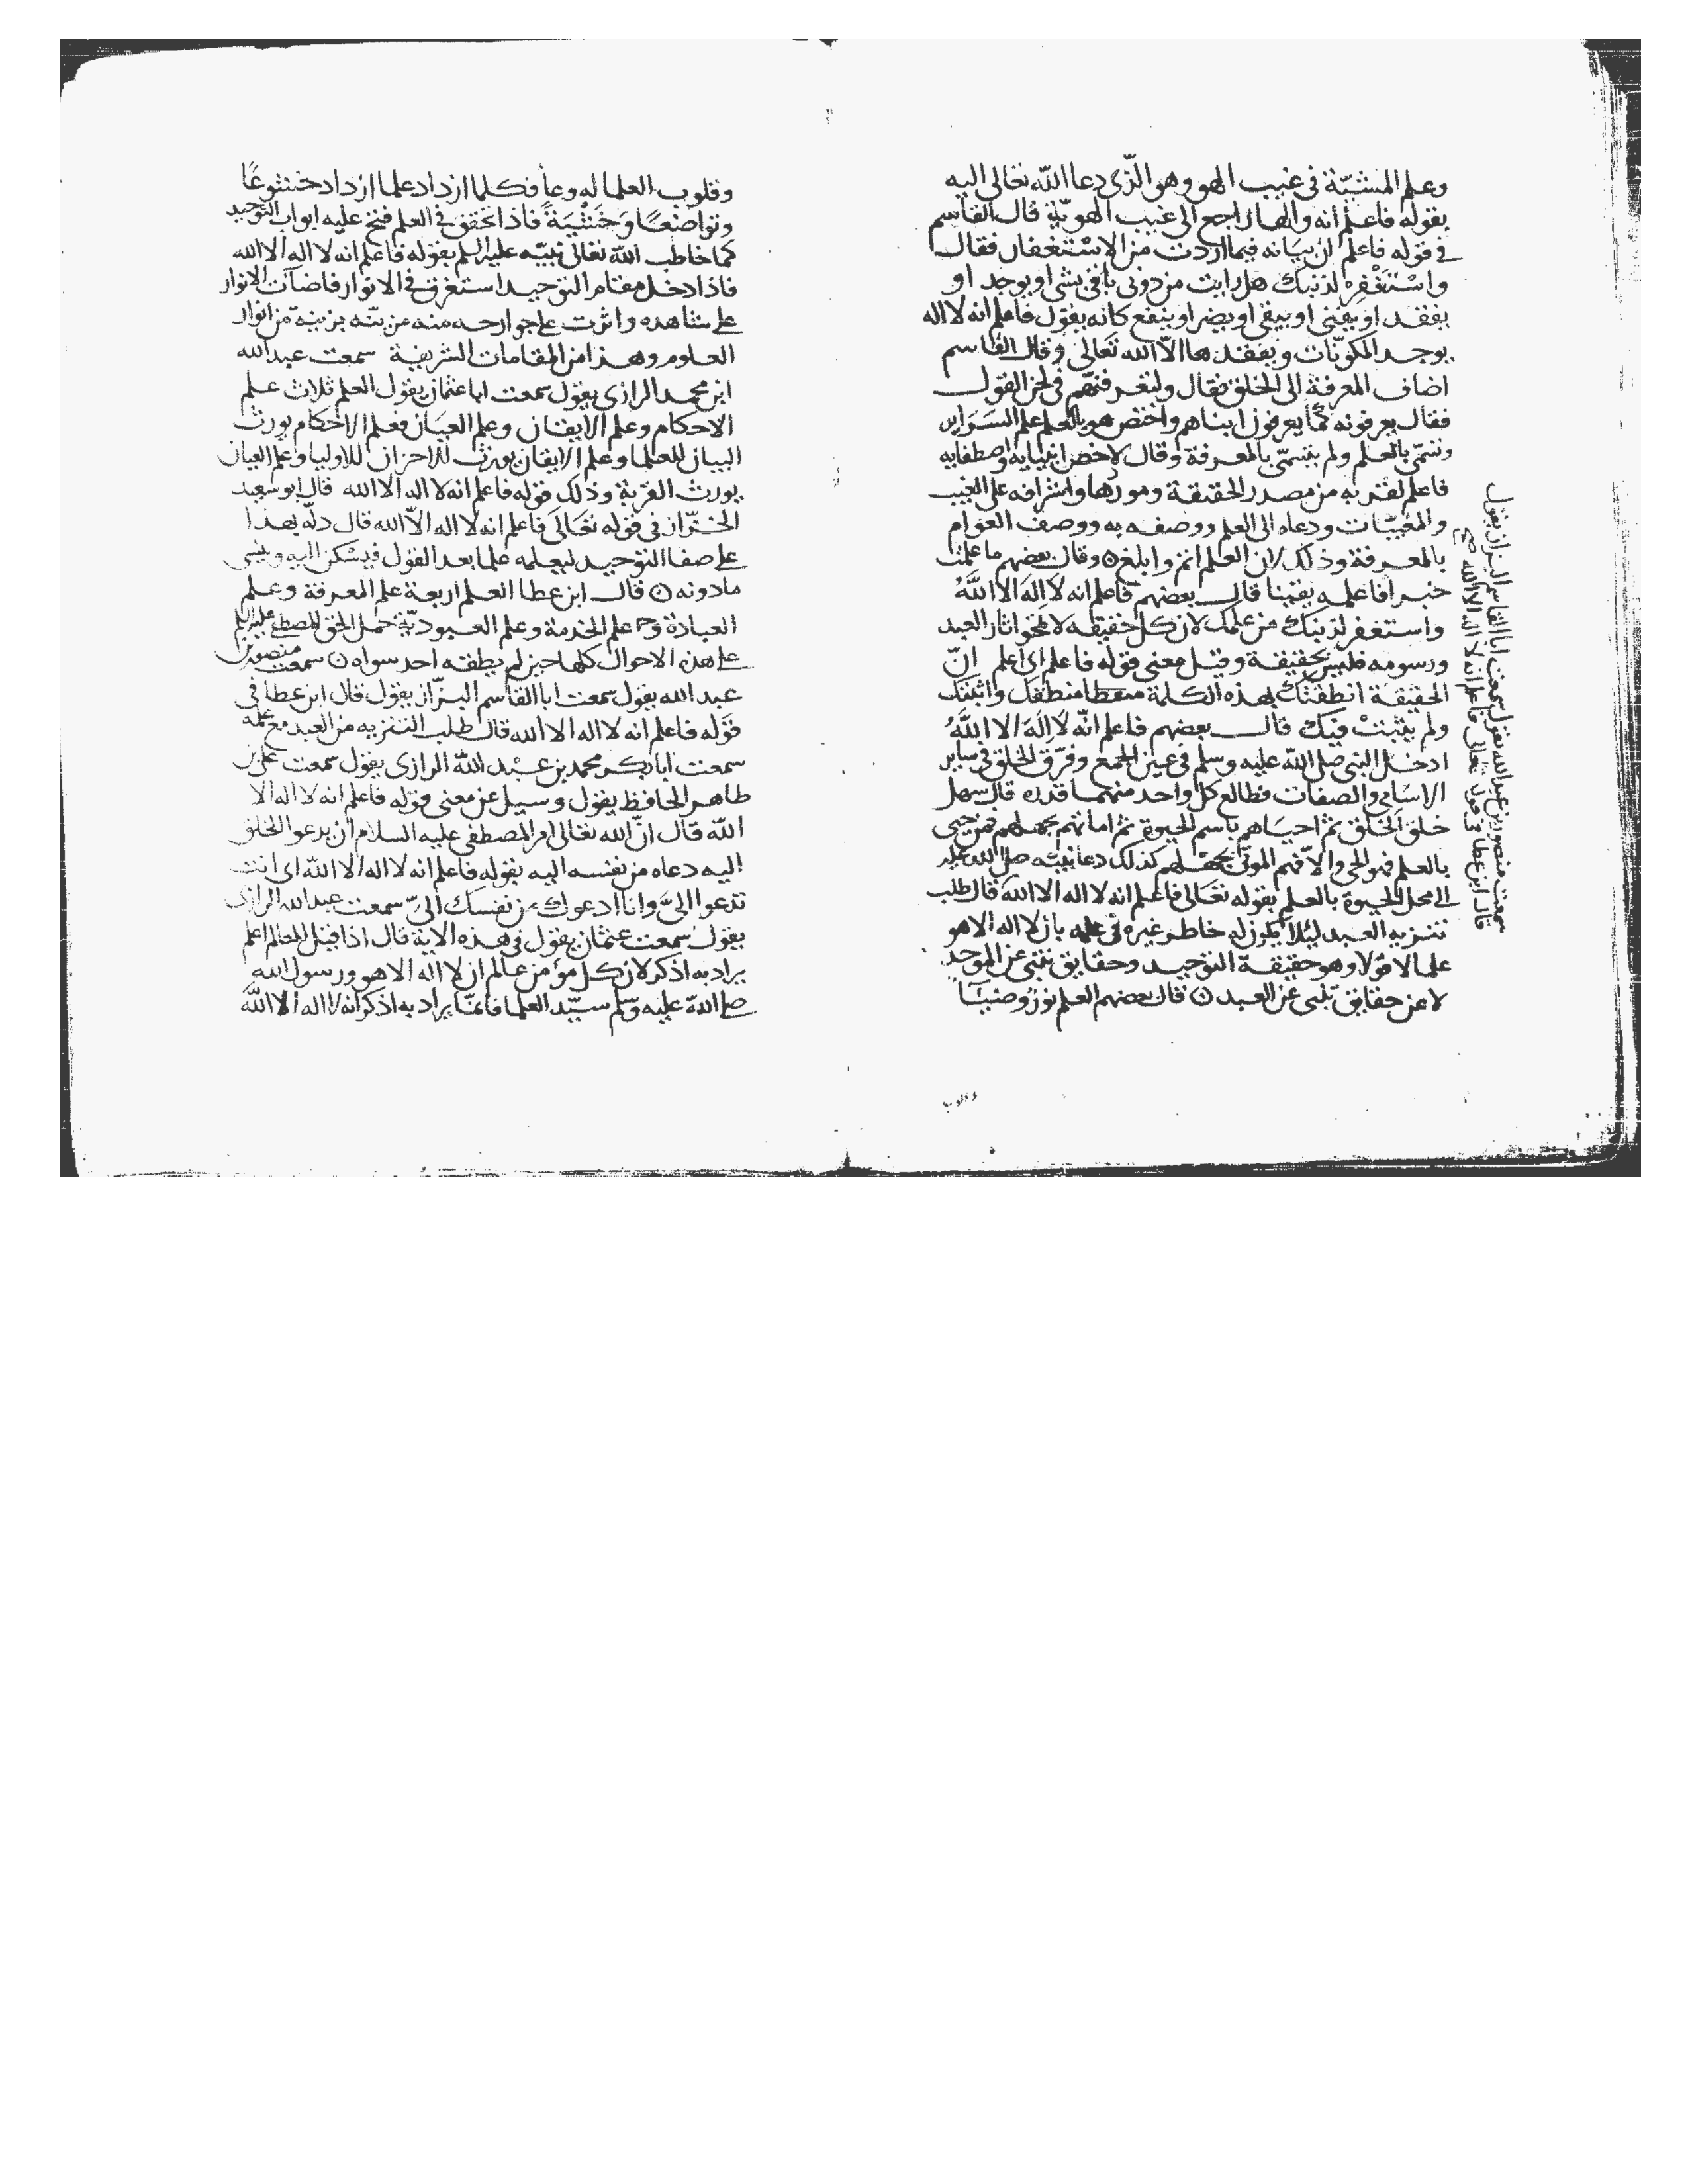 وعلم المشيّة في غيب الهو وهو الذّى دعا اللّه تعالى اليه
بقوله فاعلم انه والها راجع الى غيب الهويّة قال القاسم
في قوله فاعلم ان بيانه فيما اردت من الاستغفار فقال
واسْتَغْفِرْ لذنبك هل رايت من دونى باقى بشى او يوجد او
يفقد او يفنى او يبقى او يضر او ينفع كانه يقول فاعلم انه لا اله
يوجد المكونات ويفقدها الاّ الله تعالى وقال القاسم
اضاف المعرفة الى الخلق فقال ولتعرفنّهم في لحن القول
فقال يعرفونه كما يعرفون ابناهم واختص هو بالعلم علم السّراير
وتسمّى بالعلم ولم يتسمّى بالمعرفة وقال لاخص انبيايه واصطفايه
فاعلم لقربه من مصدر الحقيقة وموردها واشرافه على الغيب
والمغيبّات ودعاه الى العلم ووصفه به ووصف العوام
بالمعرفة وذلك لان العلم اتم وابلغ ٥ وقال بعضهم ما علمت
خبرا فاعلمه يقينا قال بعضهم فاعلم انه لَا اِلَهَ الا اللَّهُ
واستغفر لذنبك من علمك لان كل حقيقة لا تمحو اثار العبد
ورسومه فليس بحقيقة وقيل معنى قوله فاعلم اى اعلم انّ
الحقيقة انطقتك بهذه الكلمة منطقك واثبتك
ولم يثبت فيك قال بعضهم فاعلم انّه لَا اِلَهَ الا اللَّهُ
ادخل النبى صلى اللّه عليه وسلم في عين الجمع وفرّق الخلق في ساير
الاسامي والصفات فطالع كل واحد منهما قدره قال سهل
خلق الخلق ثم احياهم باسم الحيوة ثم اماتهم بجهلهم فمن حيى
بالعلم فهو الحي والاّ فهم الموتى بجهلهم كذلك دعا نبيّه صلى الله عليه
الى محل الحيوة بالعلم بقوله تعالى فاعلم انه لا اله الا الله قال طلب
تنزيه العبد ليلا يكون له خاطر غيره في علمه بان لا اله الا هو
علما لا قولا وهو حقيقة التوحيد وحقايق تنبى عن الموحد
لا عن حقايق تنبى عن العبد ٥ قال بعضهم العلم نورٌ وضيآ
سمعت منصور بن عبد الله يقول سمعت ابا القاسم البزاز يقول
قال ابن عطا في قوله تعالى فاعلم انه لا اله الا الله صح
وقلوب
وقلوب العلما له وعاً فكلما ازداد علما ازداد خشوعًا
وتواضعًا وَخَشْيَةً فاذا تحقق في العلم فتح عليه ابواب التوحيد
كما خاطب اللّه تعالى نبيّه عليه السلم بقوله فاعلم انه لا اله الا الله
فاذا دخل مقام التوحيد استغرق في الانوار فاضآت الانوار
على شاهده واثرت على جوارحه منه من بزينة من انوار
العلوم وهذا من المقامات الشريفة سمعت عبد الله
ابن محمد الرازى يقول سمعت ابا عثمان يقول العلم ثلاث علم
الاحكام وعلم الايقان وعلم العيان فعلم الاحكام يورث
البيان للعلما وعلم الايقان يورث الاحزان للاوليا وعلم العيان
يورث القربة وذلك قوله فاعلم انه لا اله الا الله قال ابو سعيد
الخرّاز في قوله تعالى فاعلم انه لا اله الاّ الله قال دلّه بهذا
على صفا التوحيد ليعلمه علما بعد القول فيسكن اليه وينسى
ما دونه ٥ قال ابن عطا العلم اربعة علم المعرفة وعلم
العبادة وعلم الخدمة وعلم العبوديّة حمل الحق المصطفى عليه السلم
على هذه الاحوال كلها حين لم يطقه احد سواه ٥ سمعت منصور بن
عبد الله يقول سمعت ابا القاسم البزّاز يقول قال ابن عطا في
قوله فاعلم انه لا اله الا الله قال طلب التنزيه من العبد مع علمه
سمعت ابا بكر محمد بن عبد اللّه الرازى يقول سمعت على بن
طاهر الحافظ يقول وسيل عن معنى قوله فاعلم انه لا اله الا
اللّه قال انّ الله تعالى امر المصطفى عليه السلام ان يدعوا الخلق
اليه دعاه من نفسه اليه بقوله فاعلم انه لا اله الا اللّه اى انت
تدعوا الىّ وانا ادعوك من نفسك الىّ سمعت عبد الله الرازى
يقول سمعت عثمان يقول في هذه الاية قال اذا قيل للعالم اعلم
يراد به اذكر لان كل مؤمن عالم ان لا اله الا هو ورسول الله
صلى اللّه عليه وسلم سيّد العلما فانمّا يراد به اذكر انه لا اله الا اللّه